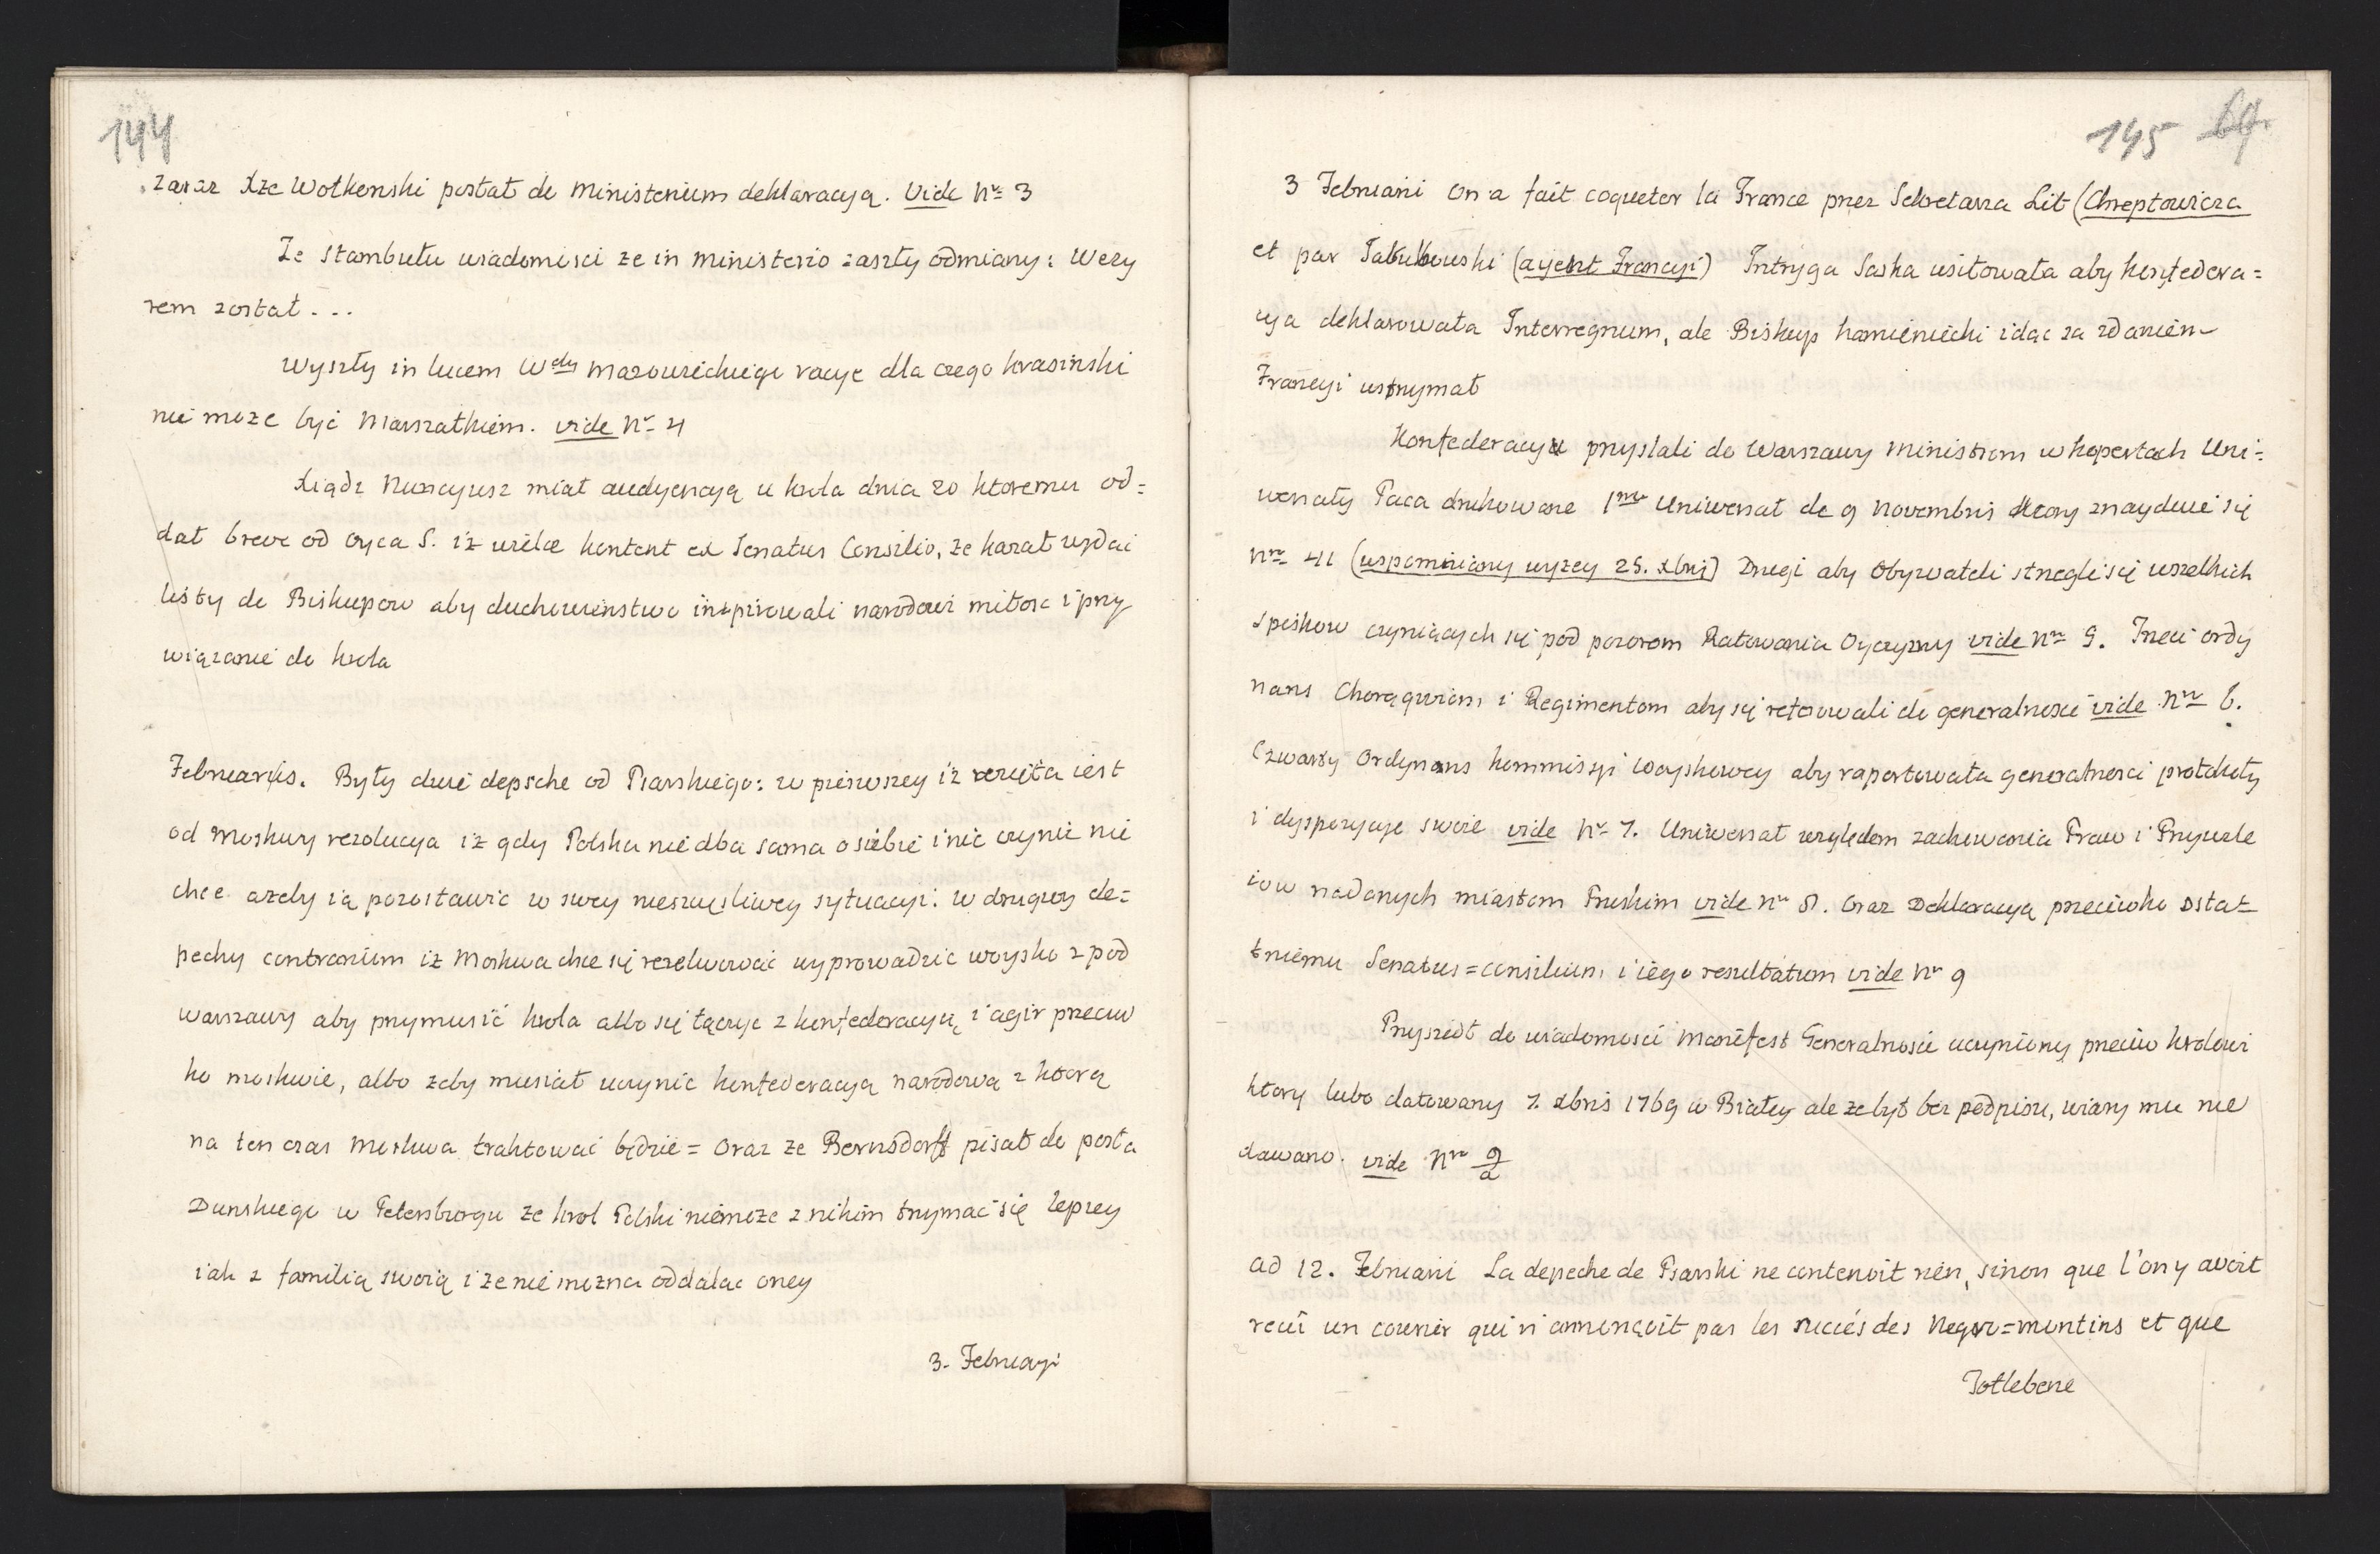 144
zaraz Xże Wołkonski posłał do Ministerium deklaracyą. Vide Nr 3
Ze Stambułu wiadomosci ze in ministerio zaszły odmiany: Wezy
rem został...
Wyszły in lucem Wdy Mazowieckiego racye dla czego Krasinski
nie moze być Marszałkiem. vide Nr 4
Xiądz Nuncyusz miał audyencyą u krola dnia 20 ktoremu od=
dał breve od oyca S. iż wielce kontent ex Senatus Consilio, ze kazał wydai
listy do Biskupow aby duchowienstwo inspirowali narodowi miłosc i przy
wiązanie do krola
Februarius. Były dwie depsche od Psarskiego: w pierwszey iż wzięta iest
od Moskwy rezolucya iż gdy Polska nie dba sama o siebie i nic czynic nie
chce azeby ią pozostawic w swey nieszczęsliwey sytuacyi: w drugiey de=
pechy contrarium iż Moskwa chce się rezolwować wyprowadzic woysko z pod
Warszawy aby przymusić krola albo się łączyc z konfederacyą i agir przeciw
ko moskwie, albo zeby musiał uczynic konfederacyą narodową z ktorą
na ten czas Moskwa traktować będzie = Oraz ze Bernsdorff pisał do posła
Dunskiego w Petersbrogu ze krol Polski niemoze z nikim trzymac się lepiey
iak z familią swoią i ze nie mozna oddalac oney
3. Februayi
145 69
3 Februarii On a fait coqueter la France przez Sekretarza Lit (Chreptowicza
et par Jakubowski (agent Francyi) Intryga Saska usiłowała aby konfedera=
cya deklarowała Interregnum, ale Biskup kamieniecki idąc za zdaniem
Francyi wstrzymał
Konfederacya przysłali do Warszawy Ministrom w kopertach Uni=
wersały Paca drukowane 1mo Uniwersał de 9 Novembris ktory znayduie się
Nro 41 (wspomniony wyzey 25. Xbris) Drugi aby Obywateli strzegli się wszelkich
spiskow czyniących się pod pozorem Ratowania Oyczyzny vide Nro 5. Trzeci ordy
nans Chorągwiom i Regimentom aby się referowali do generalnosci vide Nro 6.
Czwarty Ordynans kommisyi Woyskowey aby raportowała generalnosci protokoły
i dyspozycye swoie vide Nr 7. Uniwersał względem zachowania Praw i Przywile
iow nadanych miastom Pruskim vide Nr 8. Oraz Deklaracyą przeciwko Ostat=
tniemu Senatus=consilium i iego resultatum vide Nr 9
Przyszedł do wiadomosci Manifest Generalnosci uczyniony przeciw krolowi
ktory lubo datowany 7. Xbris 1769 w Białey ale ze był bez podpisu, wiary mu nie
dawano. vide Nro 9/a
ad 12. Februarii La depeche de Psarski ne contenoit rien, sinon que l'on y avoit
recû un courier qui n'annonçoit pas les succés des Negro=montins et que
Totlebene